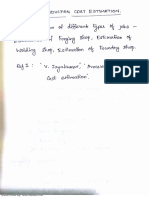 COST ESTIMATION.
of different types of jobs -
of Forging shop, Estimation of
Welding shop, Estimation of Foundry shop.
Ref 1 : "V. Jayakumar",
Cost estimation".